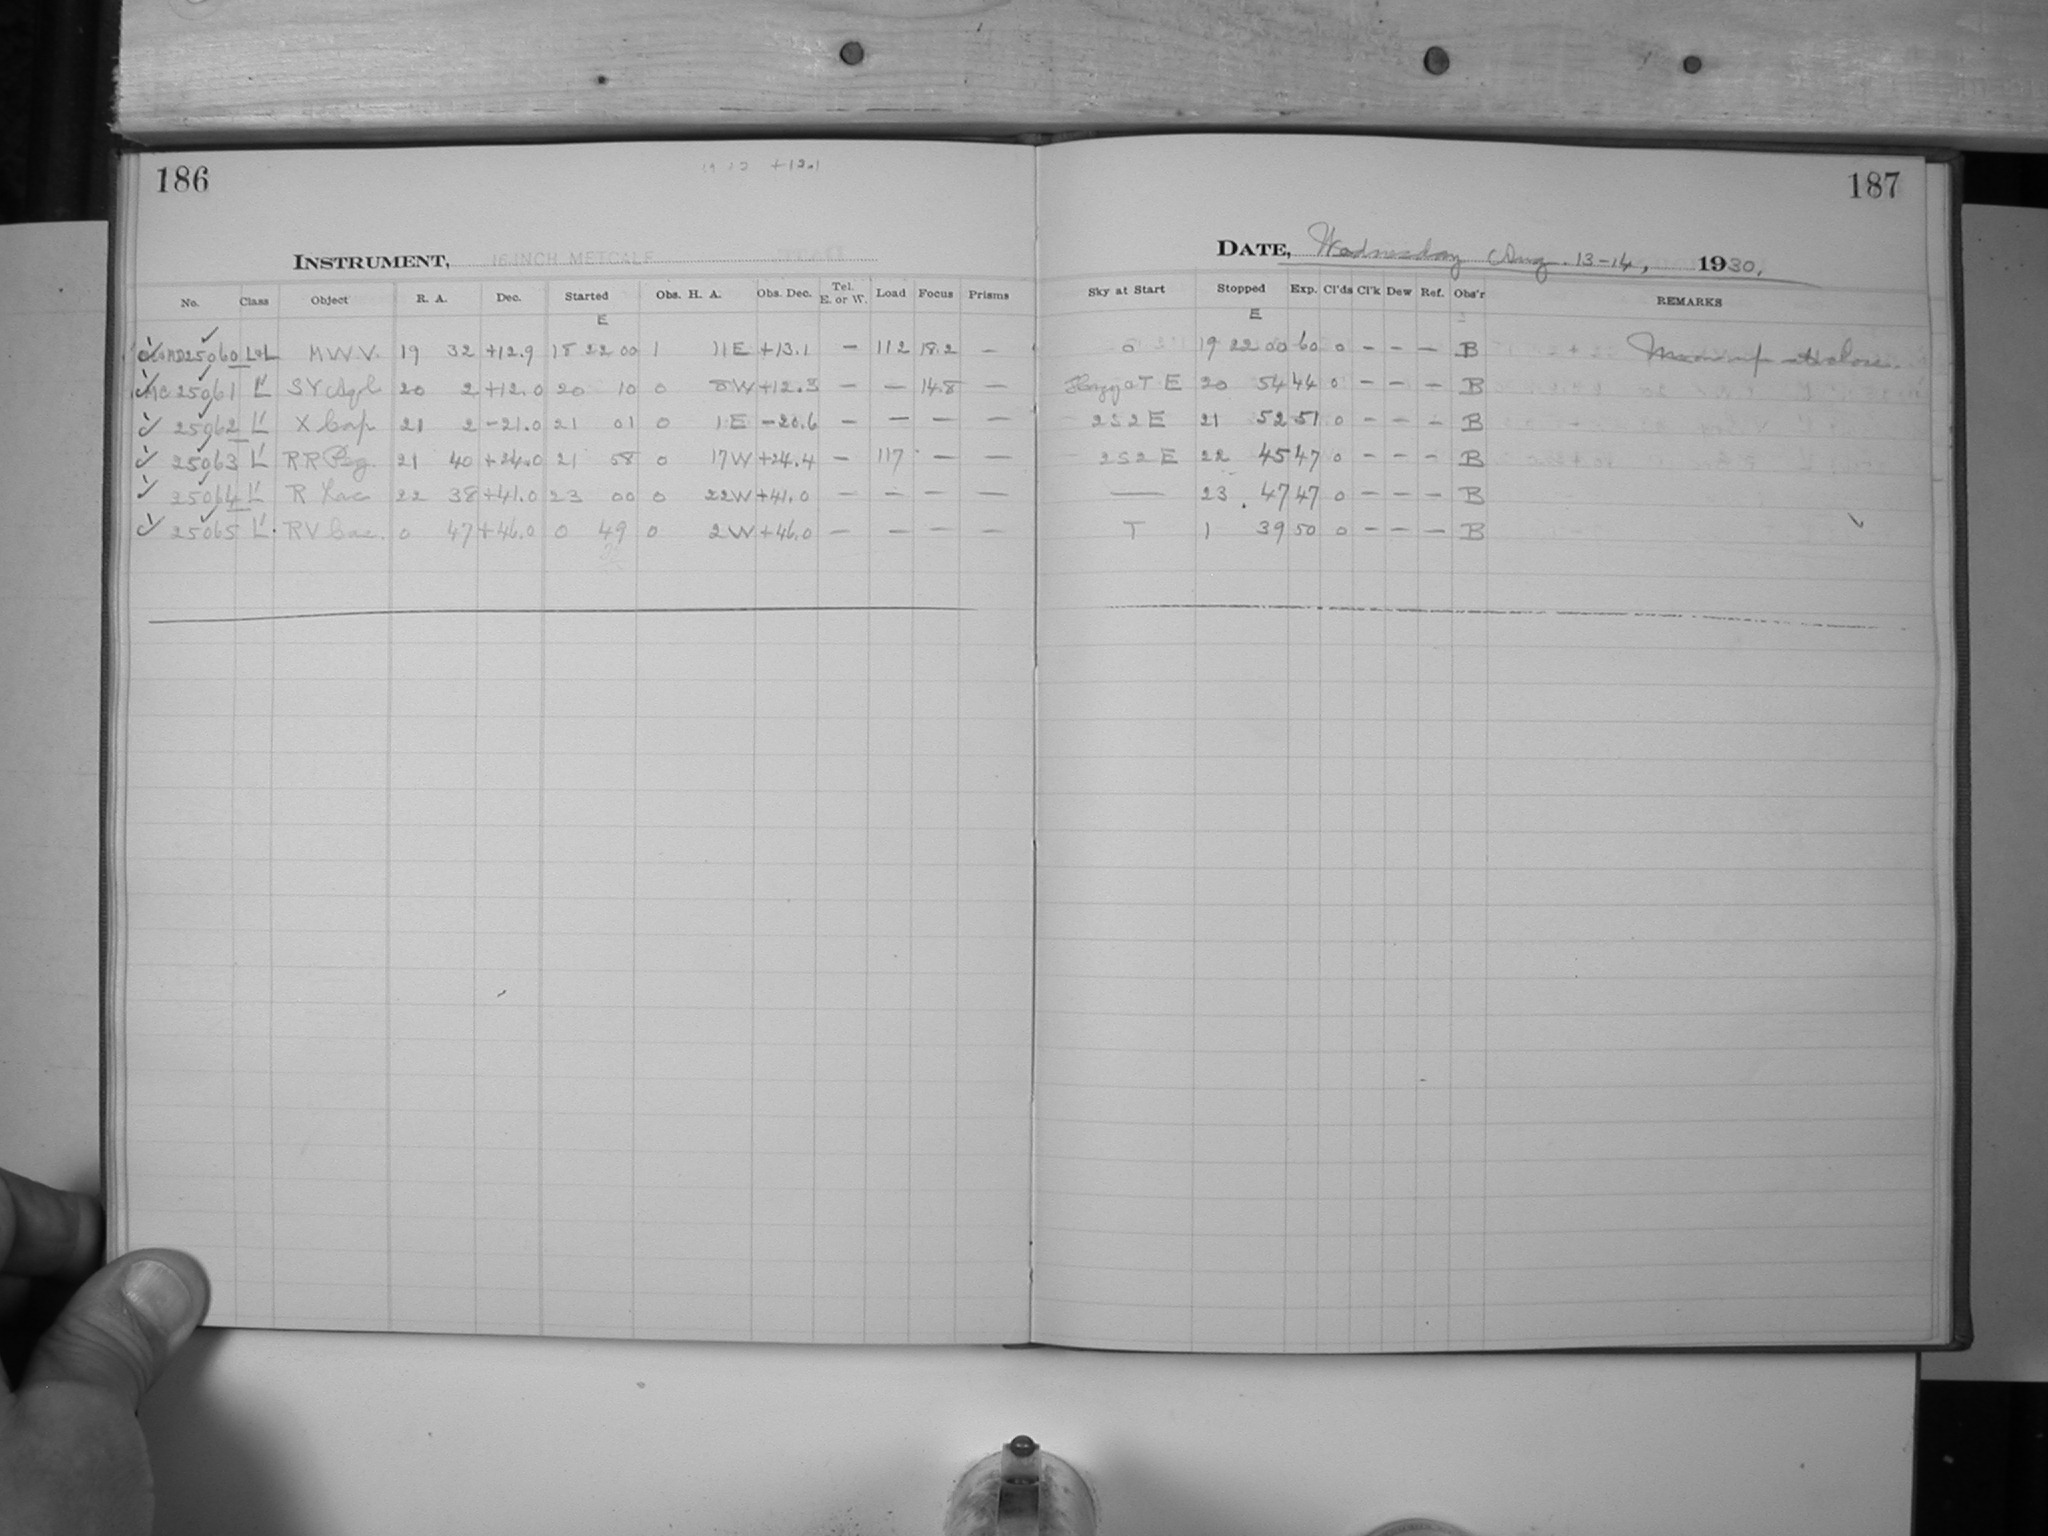 186
19 32 +12.1
INSTRUMENT, 16 INCH METCALF
No. Class Object R. A. Dec. Started Obs. H. A. Obs. Dec. Tel. E. or W. Load Focus Prisms
E
25060 L+L MWV. 19 32 +12.9 18 22 00 1 11E +13.1 — 112 18.2 —
MC 25061 L' SY Aql 20 2 +12.0 20 10 0 8W +12.3 — — 14.8 —
25062 L' X Cap 21 2 -21.0 21 01 0 1E -20.6 — — — —
25063 L' RR Peg. 21 40 +24.0 21 58 0 17W +24.4 — 117 — —
25064 L' R Lac 22 38 +41.0 23 00 0 22W +41.0 — — — —
25065 L' RV Cas. 0 47 +46.0 0 49 0 2W +46.0 — — — —
187
DATE, Wednesday Aug. 13-14, 1930,
Sky at Start Stopped Exp. Cl'ds Cl'k Dew Ref. Obs'r REMARKS
E
19 22 00 60 0 — — — B
Hazy T E 20 54 44 0 — — — B
2S2E 21 52 51 0 — — — B
2S2E 22 45 47 0 — — — B
— 23 47 47 0 — — — B
T 1 39 50 0 — — — B